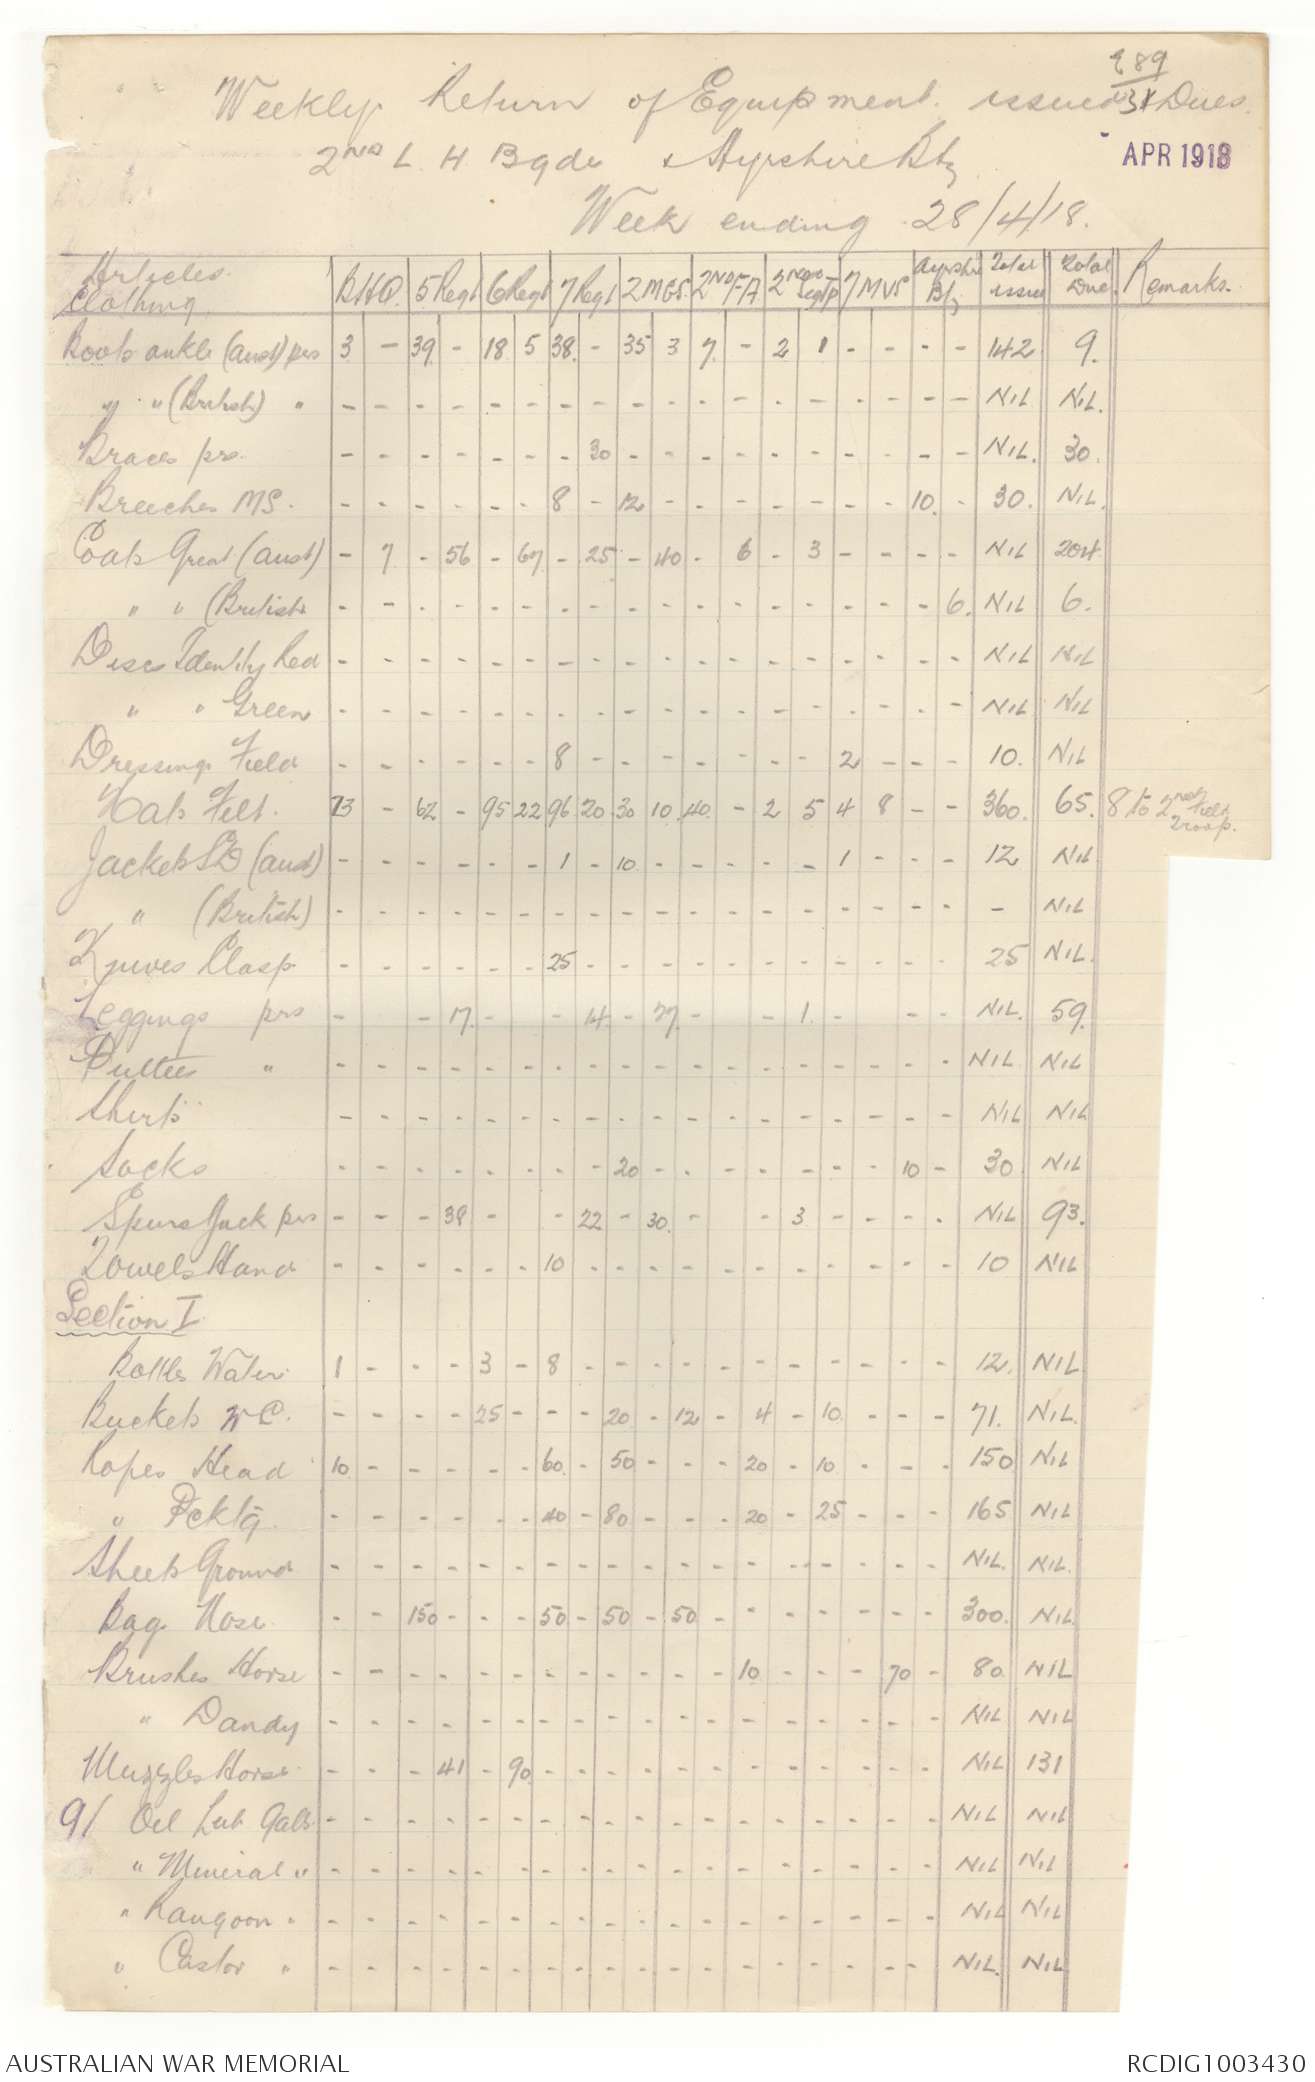 Weekly Return of Equipment issued & Dues.
2ND L H Bgde & Ayrshire Bty
APR 1918
Week ending 28/4/18.
Articles Clothing | BHQ. | 5 Regt | 6 Regt | 7 Regt | 2 MGS | 2ND FA | 2ND Sigtp | 7 MVS | Ayrshire Bty | Total issue | Total Due | Remarks.
Boots ankle (aust) prs 3 - 39. - 18 5 38. - 35 3 7. - 2 1 - - - - 142 9.
" " (British) " - - - - - - - - - - - - - - - - - - NIL NIL.
Braces prs. - - - - - - - 30 - - - - - - - - - - NIL. 30.
Breeches MS. - - - - - - 8 - 12 - - - - - - - 10. - 30. NIL.
Coats Great (aust) - 7 - 56 - 67 - 25 - 40 - 6 - 3 - - - - NIL 204
" " (British - - - - - - - - - - - - - - - - - 6. NIL 6.
Discs Identity Red - - - - - - - - - - - - - - - - - - NIL NIL
" " Green - - - - - - - - - - - - - - - - - - NIL NIL
Dressings Field - - - - - - 8 - - - - - - - 2 - - - 10. NIL
Hats Felt. 13 - 62 - 95 22 96 20 30 10 40. - 2 5 4 8 - - 360. 65. 8 to 2nd Field Troop.
Jackets SD (aust) - - - - - - 1 - 10 - - - - - 1 - - - 12 NIL
" (British) - - - - - - - - - - - - - - - - - - - NIL
Knives Clasp - - - - - - 25 - - - - - - - - - - - 25 NIL.
Leggings prs - - 17. - - 14. - 27. - - 1. - - - NIL. 59.
Puttees " - - - - - - - - - - - - - - - - - - NIL NIL
Shirts - - - - - - - - - - - - - - - - - - NIL NIL
Socks - - - - - - - - 20 - - - - - - - 10 - 30 NIL
Spurs Jack prs - - - 38 - - 22 - 30. - - 3 - - - - NIL 93.
Towels Hand - - - - - - 10 - - - - - - - - - - - 10 NIL
Section I
Bottles Water 1 - - - 3 - 8 - - - - - - - - - - - 12. NIL
Buckets WC. - - - - 25 - - - 20 - 12 - 4 - 10 - - - 71. NIL.
Ropes Head 10 - - - - - 60. - 50 - - - 20 - 10 - - - 150 NIL
" Pcktg - - - - - - 40 - 80 - - - 20 - 25 - - - 165 NIL
Sheets Ground - - - - - - - - - - - - - - - - - - NIL. NIL.
Bag Nose - - 150 - - - 50 - 50 - 50 - - - - - - - 300. NIL
Brushes Horse - - - - - - - - - - - - 10 - - - 70 - 80. NIL
" Dandy - - - - - - - - - - - - - - - - - - NIL NIL
Muzzles Horse - - - 41 - 90 - - - - - - - - - - - - NIL 131
91 Oil Lub Galls - - - - - - - - - - - - - - - - - - NIL NIL
" Mineral " - - - - - - - - - - - - - - - - - - NIL NIL
" Rangoon " - - - - - - - - - - - - - - - - - - NIL NIL
" Castor " - - - - - - - - - - - - - - - - - - NIL. NIL
AUSTRALIAN WAR MEMORIAL
RCDIG1003430